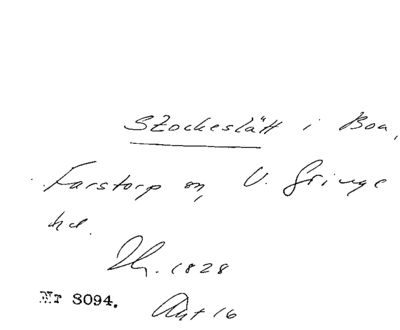 Stockeslätt i Boa,
Farstorp sn, V. Göinge
hd.
Th. 1828
Nr 8094.
Akt 16